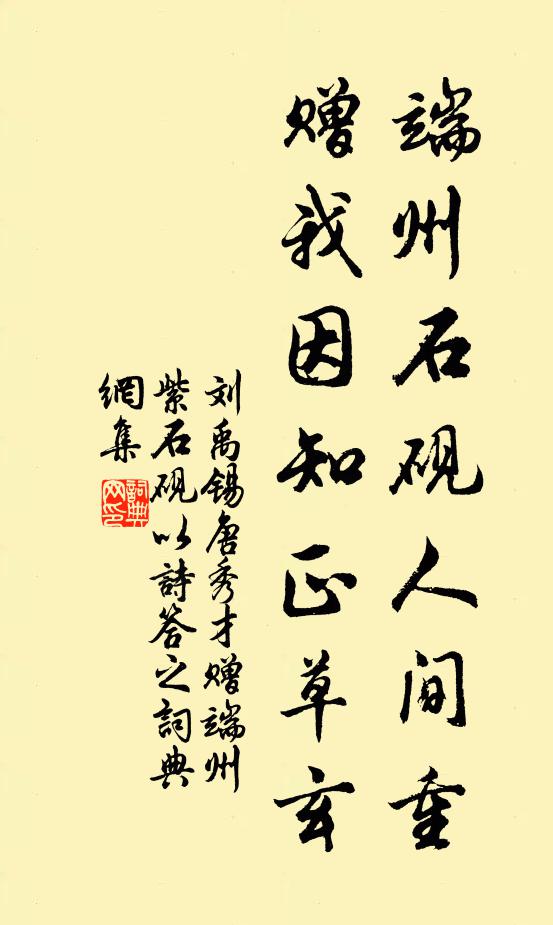 端州石砚人间重
赠我因知正草玄
刘禹锡唐秀才赠端州
紫石砚以詩答之詞典
網集
詞典
网印